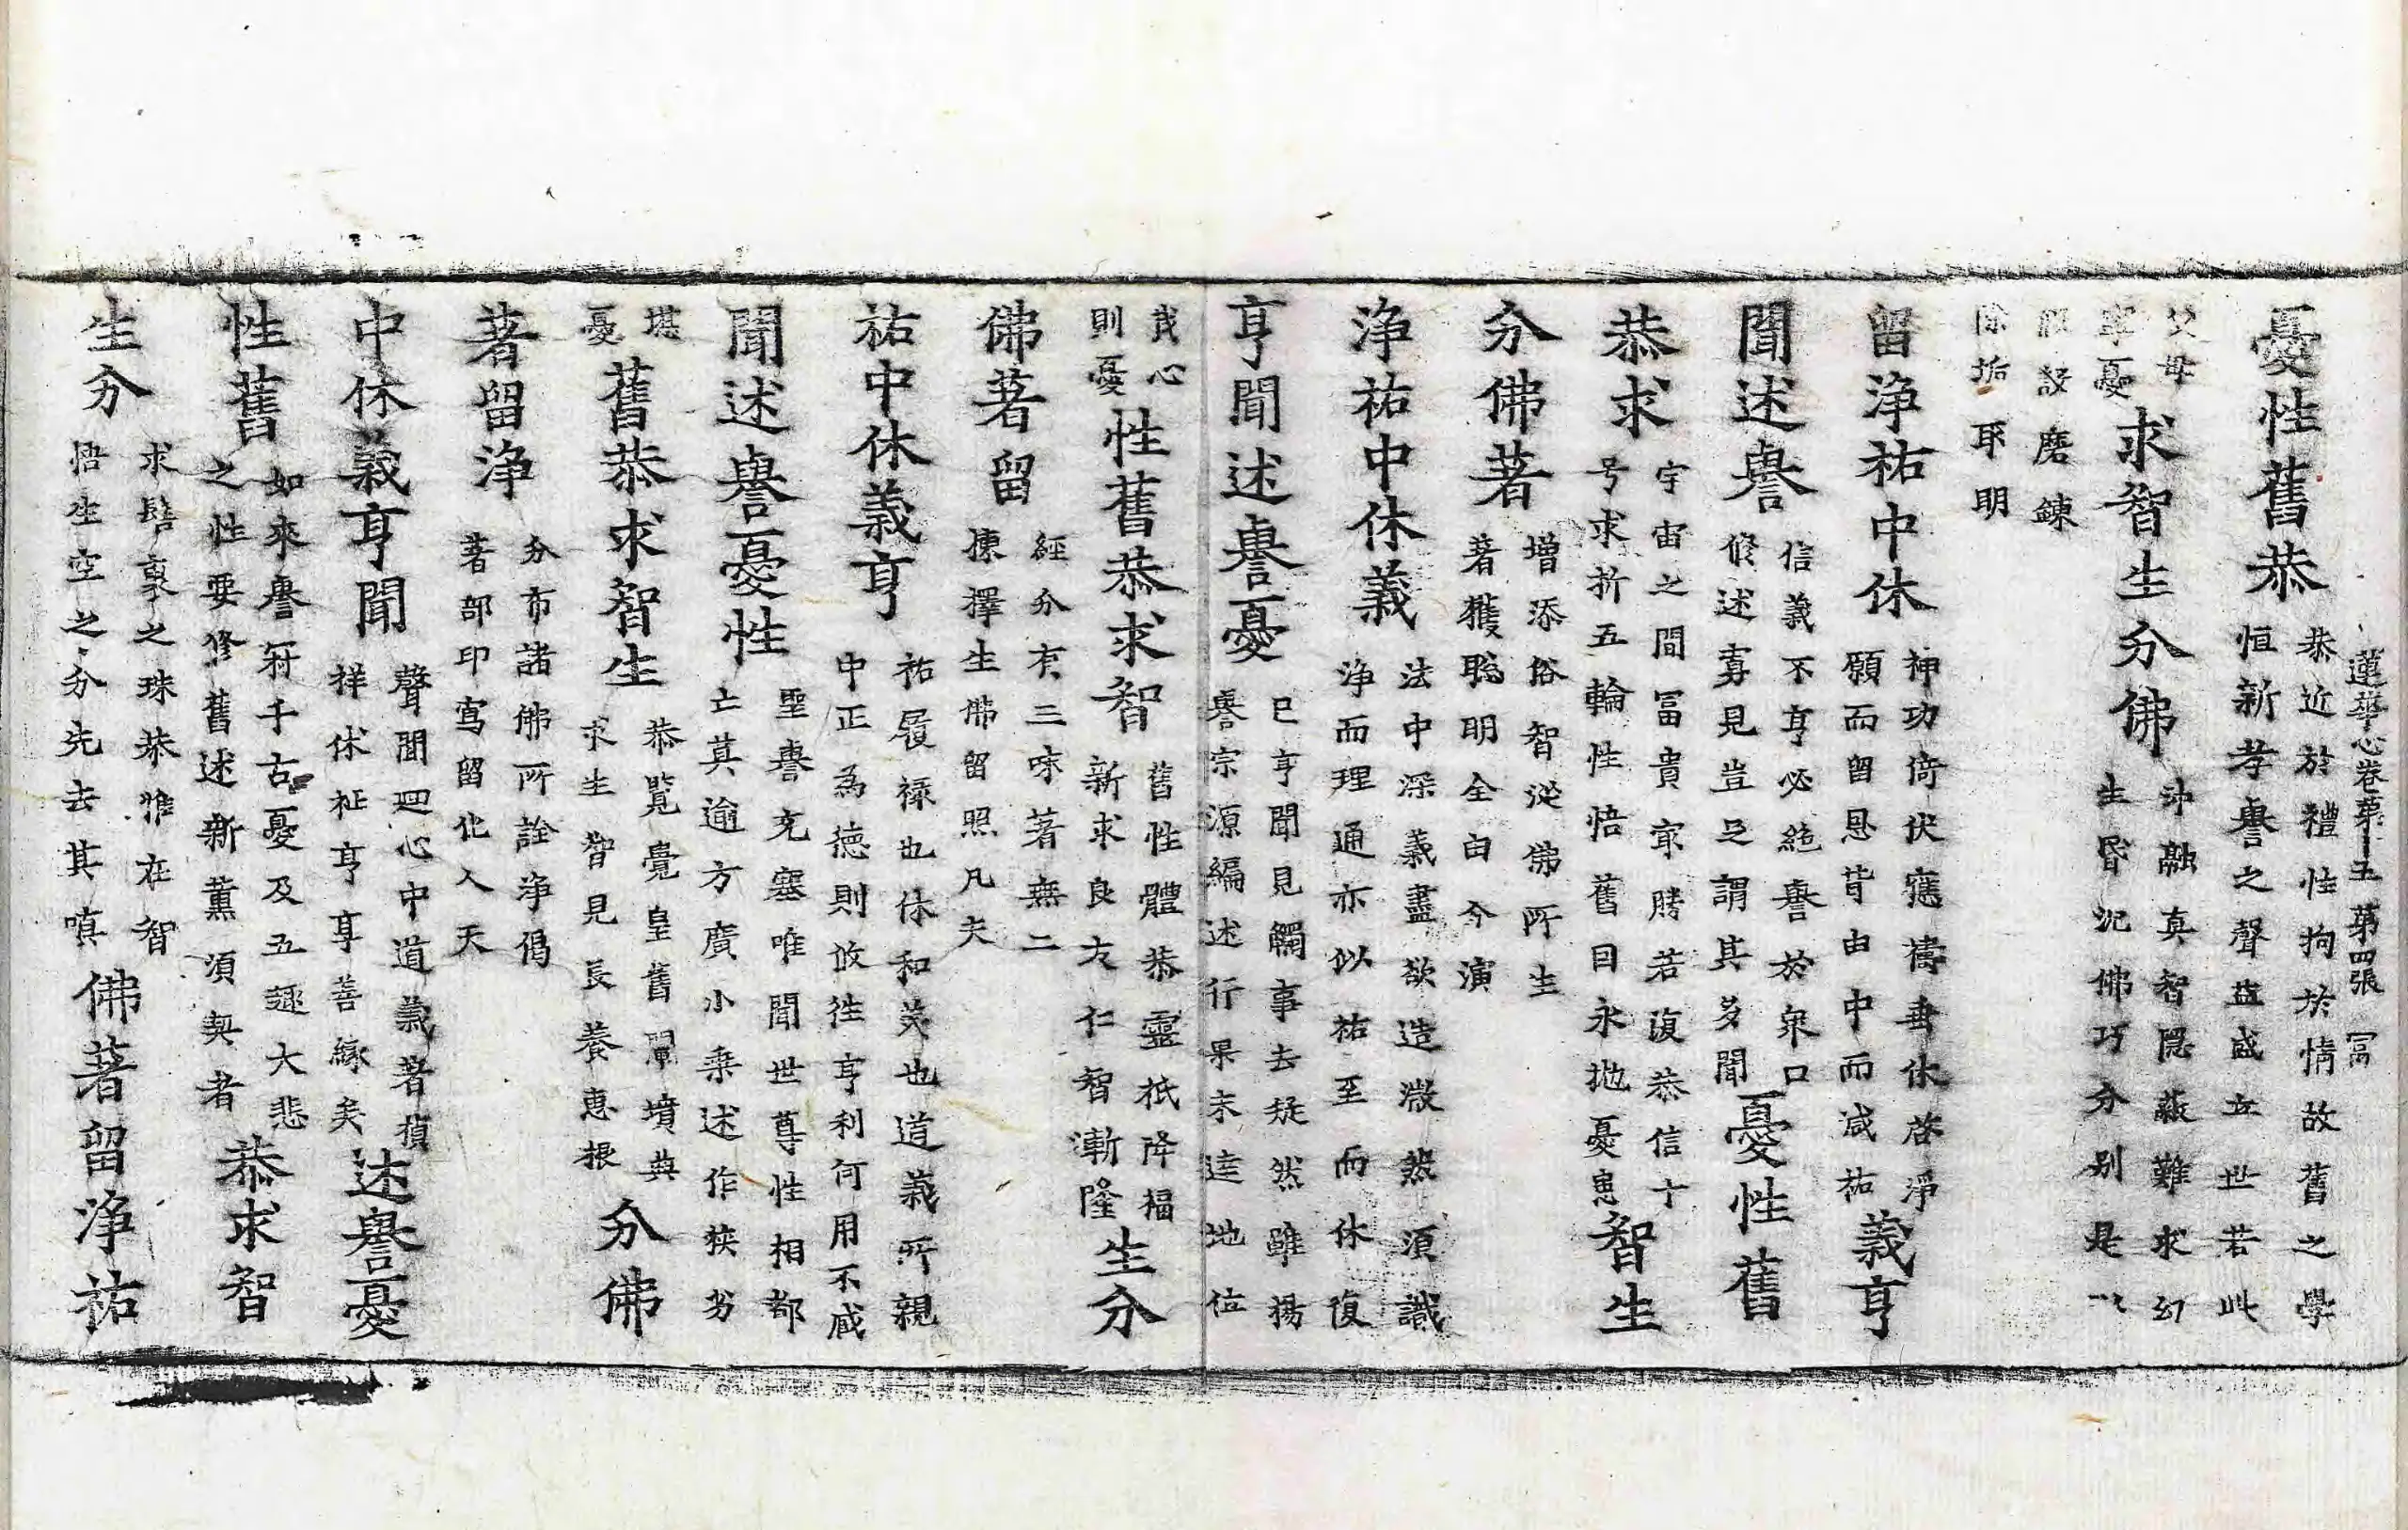 憂性舊恭
恭近於禮性拘於情故舊之學
恒新孝譽之聲益盛立世若此
蓮華心卷第十五 第四張 冨
父母
寧憂
求智生分佛
沖融真智隱蔽難求幻
生昏沉佛巧分別是以
假設磨鍊
除垢耶明
留淨祐中休
神功倚伏應禱垂休啓淨
願而留恩皆由中而咸祐
義亨
聞述譽
信義不亨必絶譽於衆口
修述寡見豈足謂其多聞
憂性舊
恭求
宇宙之間冨貴寧勝若復恭信十
号求折五輪性悟舊目永拋憂患
智生
分佛著
增添俗智從佛所生
著獲聡明全由今演
淨祐中休義
法中深義盡欲造微然須識
淨而理通亦似祐至而休復
亨聞述譽憂
已亨聞見觸事去疑然雖揚
譽宗源編述行果未達地位
我心
則憂
性舊恭求智
舊性體恭靈祇降福
新求良友仁智漸隆
生分
佛著留
經分有三味著無二
揀擇生佛留照凡夫
祐中休義亨
祐履祿也休和美也道義所親
中正為德則攸往亨利何用不臧
聞述譽憂性
聖譽充塞唯聞世尊性相都
亡莫逾方廣小乘述作狹劣
堪
憂
舊恭求智生
恭覧覺皇舊闡墳典
求生智見長養恵根
分佛
著留淨
分布諸佛所詮淨偈
著部印寫留化人天
中休義亨聞
聲聞迴心中道義著禎
祥休祉亨亨善緣矣
述譽憂
性舊
如來譽冠千古憂及五趣大悲
之性要修舊述新薰須契者
恭求智
生分
求髻裏之珠恭惟在智
悟生空之分先去其嗔
佛著留淨祐